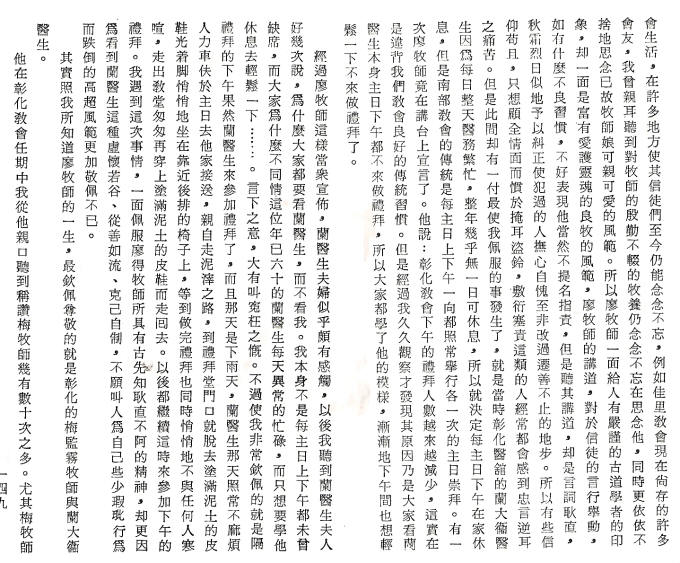 會生活，在許多地方使其信徒們至今仍能念念不忘，例如佳里敎會現在尙存的許多
會友，我曾親耳聽到對牧師的殷勤不輟的牧養仍念念不忘在思念他，同時更依依不
捨地思念已故牧師娘可親可愛的風範。所以廖牧師一面給人有嚴謹的古道學者的印
象，却一面是富有愛護靈魂的良牧的風範，廖牧師的講道，對於信徒的言行舉動，
如有什麼不良習慣，不好表現他當然不提名指責，但是聽其講道，却是言詞耿直，
秋霜烈日似地予以糾正使犯過的人撫心自愧至非改過遷善不止的地步。所以有些信
仰苟且，只想顧全情面而慣於掩耳盜鈴，敷衍塞責這類的人經常都會感到忠言逆耳
之痛苦。但是此間却有一付最使我佩服的事發生了，就是當時彰化醫舘的蘭大衞醫
生因爲每日整天醫務繁忙，整年幾乎無一日可休息，所以就決定每主日下午在家休
息，但是南部敎會的傳統是每主日上下午一向都照常舉行各一次的主日崇拜。有一
次廖牧師竟在講台上宣言了。他說：彰化敎會下午的禮拜人數越來越減少，這實在
是違背我們敎會良好的傳統習慣。但是經過我久久觀察才發現其原因乃是大家看蘭
醫生本身主日下午都不來做禮拜，所以大家都學了他的模樣，漸漸地下午間也想輕
鬆一下不來做禮拜了。
經過廖牧師這樣當衆宣佈，蘭醫生夫婦似乎頗有感觸，以後我聽到蘭醫生夫人
好幾次說，爲什麼大家都要看蘭醫生，而不看我。我本身不是每主日上下午都未曾
缺席，而大家爲什麼不同情這位年已六十的蘭醫生每天異常的忙碌，而只想要學他
休息去輕鬆一下……。言下之意，大有叫寃枉之慨。不過使我非常欽佩的就是隔
禮拜的下午果然蘭醫生來參加禮拜了，而且那天是下雨天，蘭醫生那天照常不麻煩
人力車伕於主日去他家接送，親自走泥濘之路，到禮拜堂門口就脫去塗滿泥土的皮
鞋光着脚悄悄地坐在靠近後排的椅子上，等到做完禮拜也同時悄悄地不與任何人寒
喧，走出敎堂匆匆再穿上塗滿泥土的皮鞋而走囘去。以後都繼續這時來參加下午的
禮拜。我遇到這次事情，一面佩服廖得牧師所具有古先知耿直不阿的精神，却更因
爲看到蘭醫生這種虛懷若谷、從善如流、克己自制，不願叫人爲自己些少瑕玼行爲
而跌倒的高超風範更加敬佩不已。
其實照我所知道廖牧師的一生，最欽佩尊敬的就是彰化的梅監霧牧師與蘭大衞
醫生。
他在彰化敎會任期中我從他親口聽到稱讚梅牧師幾有數十次之多。尤其梅牧師
一四九